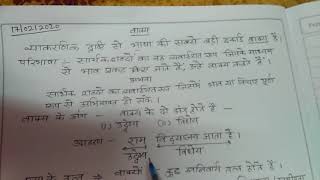 17/02/2020
वाक्य
व्याकरणिक दृष्टि से भाषा की सबसे बड़ी इकाई वाक्य है।
परिभाषा:- सार्थक शब्दों का वह व्यवस्थित रूप जिसके माध्यम
से भाव प्रकट किए जाते हैं, उसे वाक्य कहते हैं।
अथवा
सार्थक शब्दों का व्यवस्थित रूप जिसमें भाव या विचार पूर्ण
रूप से अभिव्यक्त हो सके।
वाक्य के अंग - वाक्य के दो अंग होते हैं -
① उद्देश्य ② विधेय
उदाहरण - राम विद्यालय जाता है।
उद्देश्य विधेय
के तत्व → वाक्यों कुछ अनिवार्य तत्व होते हैं।